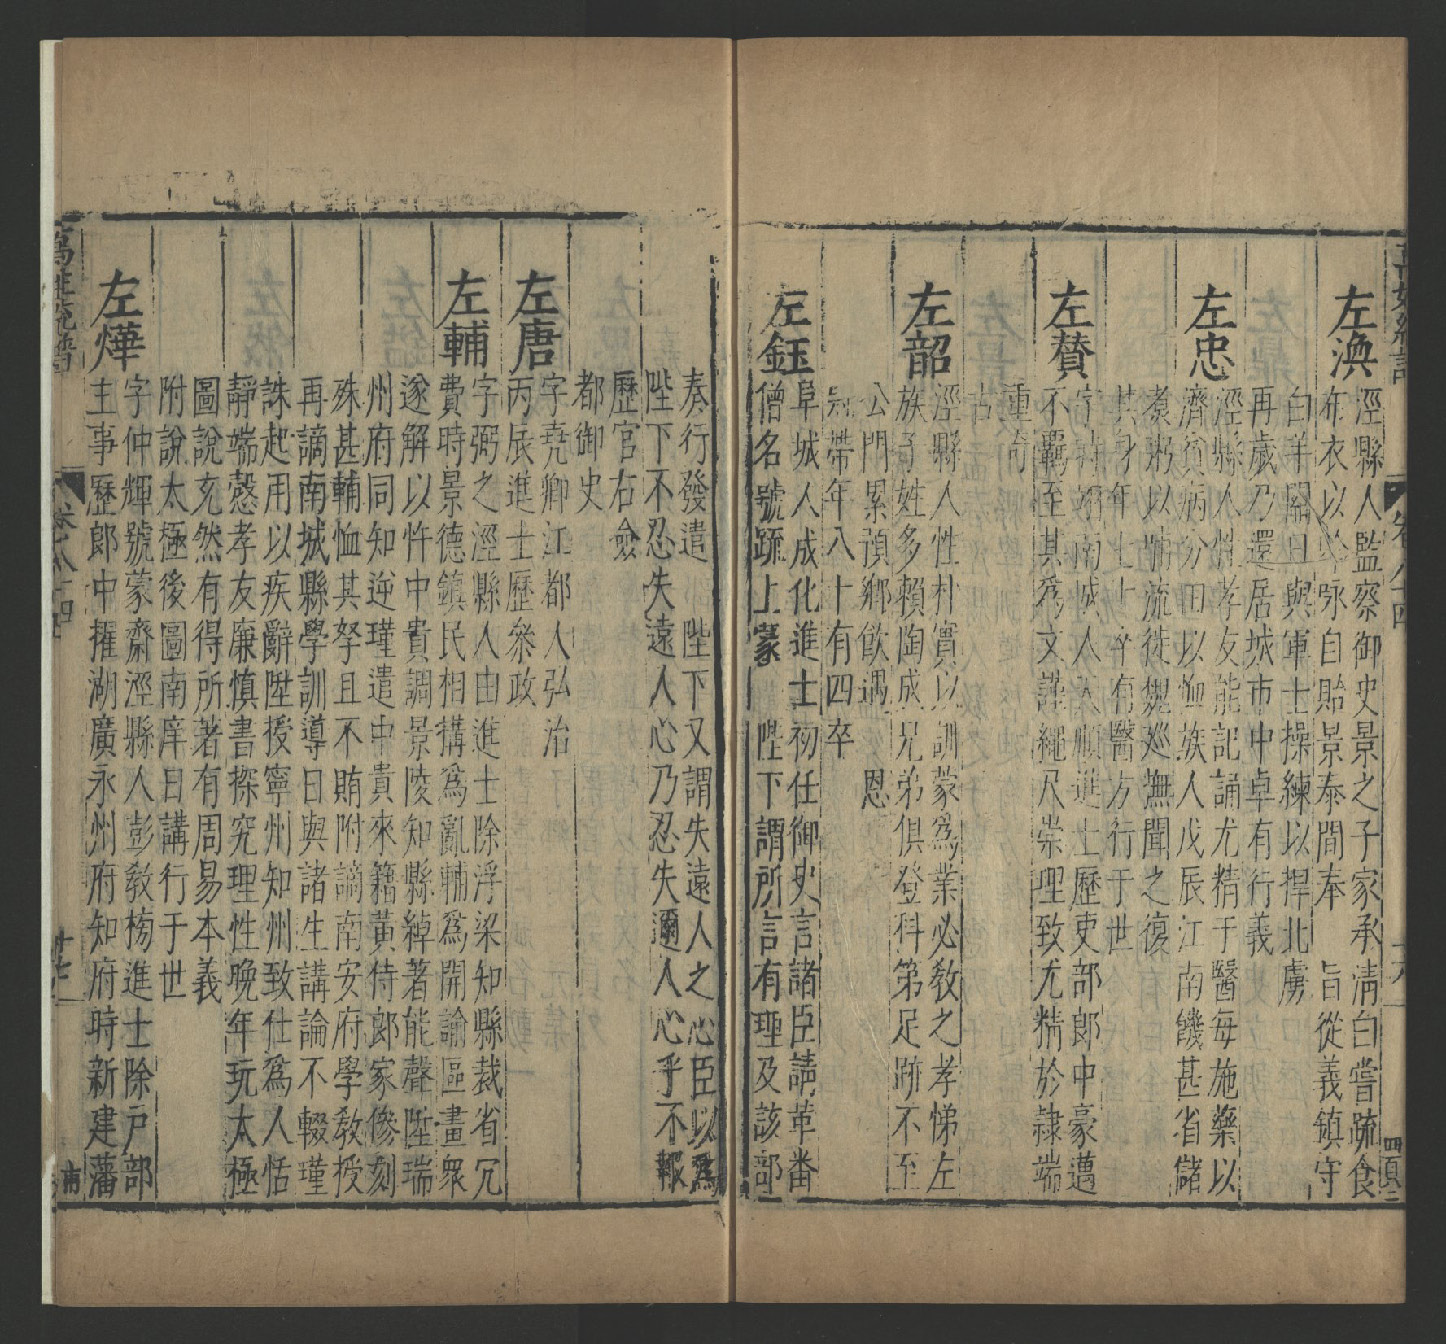 左渙
涇縣人監察御史景之子家承清白嘗疏食
布衣以吟咏自貽景泰間奉 旨從義鎮守
白羊關日與軍士操練以捍北虜
再歲乃還居城市中卓有行義
左忠
涇縣人性孝友能記誦尤精于醫每施藥以
濟貧病分田以恤族人戊辰江南饑甚省儲
煮粥以餔流徙輿巡撫聞之復
其身年七十卒有醫方行于世
左贊
字時翊南城人天順進士歷吏部郎中豪邁
不羈至其爲文謹繩尺崇理致尤精於隸端
重奇
古
左韶
涇縣人性朴實以訓蒙爲業必敎之孝悌左
族子姓多賴陶成兄弟俱登科第足跡不至
公門累預鄉飲遇 恩
冠帶年八十有四卒
左鈺
阜城人成化進士初任御史言諸臣請革番
僧名號疏上篆 陛下謂所言有理及該部
奏行發遣 陛下又謂失遠人之心臣以爲
陛下不忍失遠人心乃忍失邇人心乎不報
歷官右僉
都御史
左唐
字堯卿江都人弘治
丙辰進士歷叅政
左輔
字弼之涇縣人由進士除浮梁知縣裁省冗
費時景德鎮民相搆爲亂輔爲開諭區畫衆
遂解以忤中貴調景陵知縣綽著能聲陞瑞
州府同知逆瑾遣中貴來籍黃侍郎家傪刻
殊甚輔恤其孥且不賄附謫南安府學敎授
再謫南城縣學訓導日與諸生講論不輟瑾
誅起用以疾辭陞授寧州知州致仕爲人恬
靜端慤孝友廉愼書探究理性晚年玩太極
圖說充然有得所著有周易本義
附說太極後圖南庠日講行于世
左燁
字仲輝號蒙齋涇縣人彭敎榜進士除戶部
主事歷郎中擢湖廣永州府知府時新建藩
萬姓統譜
卷八十四